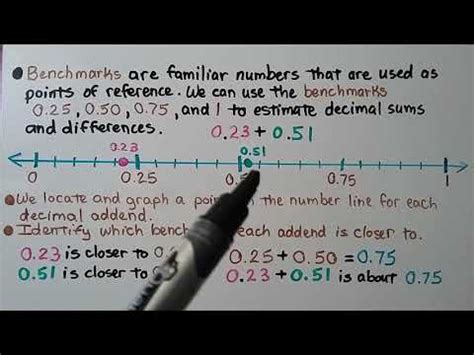 Benchmarks are familiar numbers that are used as
points of reference. We can use the benchmarks
0.25, 0.50, 0.75, and 1 to estimate decimal sums
and differences. 0.23 + 0.51
0.23 0.51
0 0.25 0.75 1
We locate and graph a the number line for each
decimal addend.
Identify which each addend is closer to.
0.23 is closer to 0.25 + 0.50 = 0.75
0.51 is closer to 0.23 + 0.51 is about 0.75